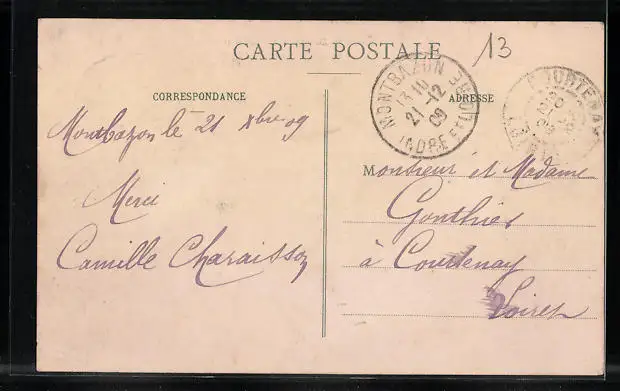 CARTE POSTALE
13
CORRESPONDANCE
ADRESSE
MONTBAZON
13-10
21-12
09
INDRE ET LOIRE
COURTENAY
Montbazon le 21 Xbre 09
Merci
Camille Charaisson
Monsieur et Madame
Gonthier
à Courtenay
Loiret